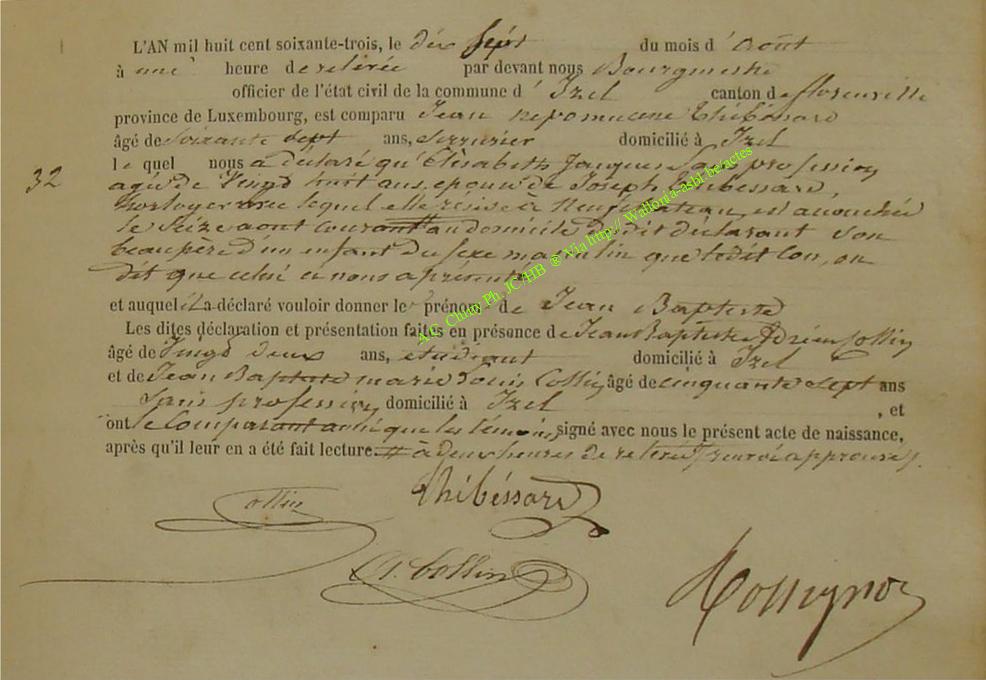 L'AN mil huit cent soixante-trois, le dix sept du mois d' août
à une heure de relevée par devant nous Bourgmestre
officier de l'état civil de la commune d' Izel canton de florenville
province de Luxembourg, est comparu Jean Nepomucene Thibéssard
âgé de soixante sept ans, serrurier domicilié à Izel
le quel nous a déclaré qu'Elisabeth Jacques Sans profession
32
agée de Vingt huit ans, epouse de Joseph Thibessard,
horloger avec lequel elle reside à Neufchateau, est accouchée
le Seize aout courant au domicile dudit déclarant son
beaupère d'un enfant du sexe masculin que ledit
dit que celui ci nous a presenté
et auquel il a déclaré vouloir donner le prénom de Jean Baptiste
Les dites déclaration et présentation faites en présence de Jean Baptiste Adrien Collin
âgé de Vingt deux ans, etudiant domicilié à Izel
et de Jean Baptiste marie Louis Collin âgé de cinquante sept ans
Sans profession domicilié à Izel , et
ont le Comparant ainsi que les témoins signé avec nous le présent acte de naissance,
après qu'il leur en a été fait lecture. à deux heures de relevée (renvoi approuvé).
Thibéssard
Collin
A. Collin
Rossignol
A.E. Chiny Ph. JCAHB @ Via http:// Wallonia-asbl.be/actes